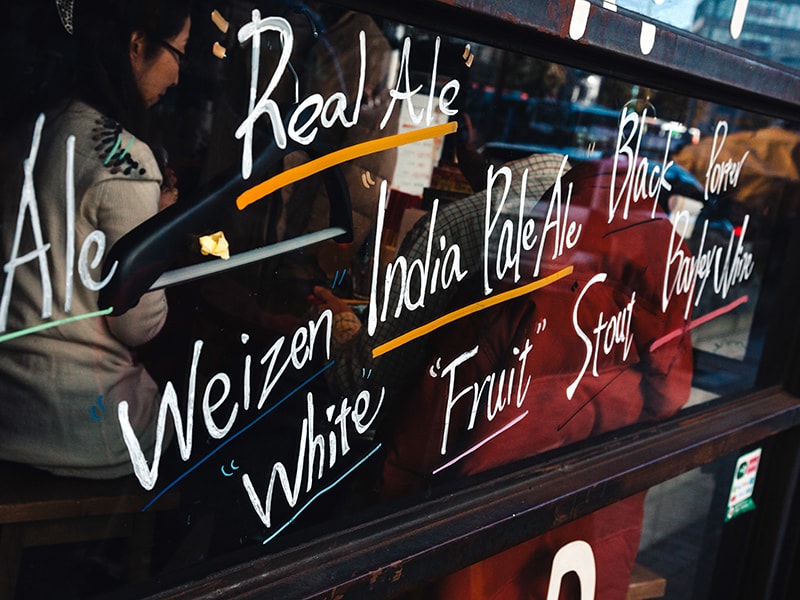 Real Ale"
Ale
India Pale Ale
"Black Porter
Weizen
"White"
"Fruit"
Stout
Barley Wine